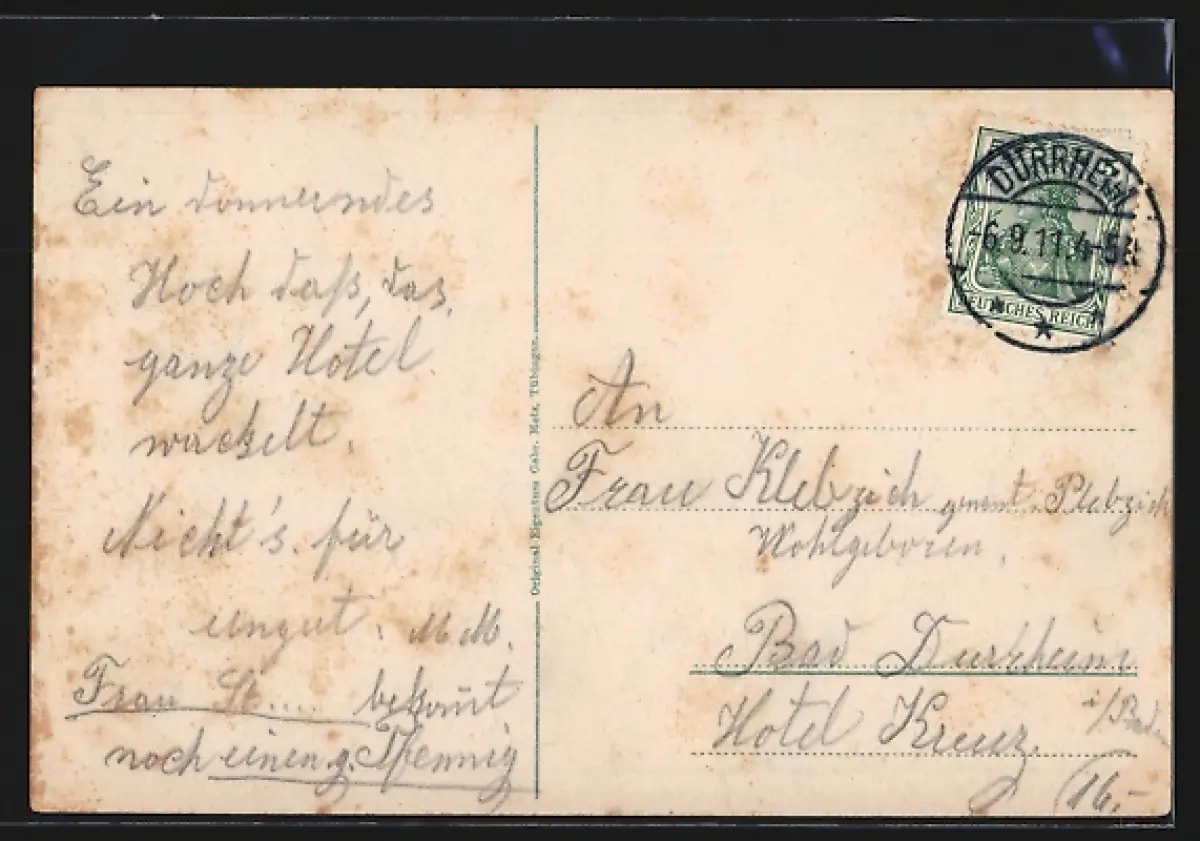 Ein donnerndes
Hoch daß, das
ganze Hotel
wackelt.
Nicht's für
ungut. M.M.
Frau St.... bekomt
noch einen g. Pfennig
Original Eigentum Gebr. Metz, Tübingen
DÜRRHEIM
-6.9.11.4-5N
DEUTSCHES REICH
An
Frau Klebzich genant. Plebzich
Wohlgeboren.
Bad Durrheim
i/Baden
Hotel Kreuz.
(16.-